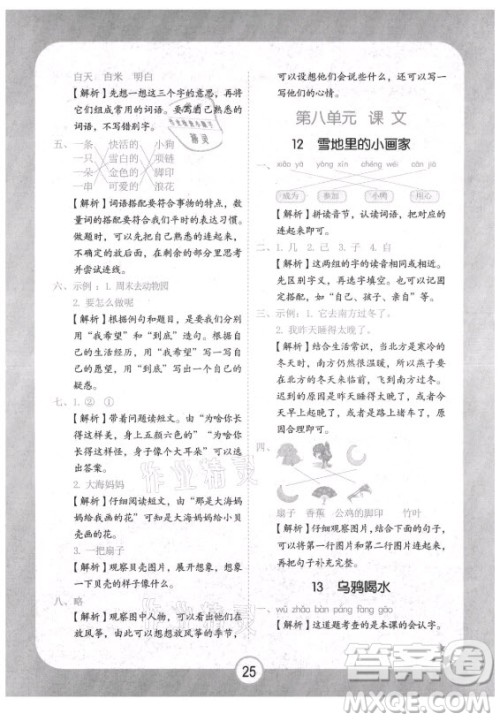 白天 白米 明白
【解析】先想一想这三个字的意思，再将
它们组成常用的词语。写自己熟悉的
词语，不写错别字。
五、一条 快活的 小狗
一只 雪白的 项链
一朵 金色的 脚印
一串 可爱的 浪花
【解析】词语搭配要符合事物的特点，数
量词的搭配要符合我们平时的表达习
惯。做题时，可以先把自己熟悉的连起来，
不确定的内容，在剩余的部分里思考
并尝试连线。
六、示例：1. 周末去动物园
2. 要怎么做呢
【解析】根据例句和题目，可以发现要
用“我希望”和“到底”造句。根据自己
的生活经历，用“我希望”写一写自己
的愿望，用“到底”写一写自己有什么
疑惑。
七、1. ② ①
【解析】带着问题读短文。由“为什么你
长得这样美，身上五颜六色的”“为什么
你长得像个大耳朵”可以
选出答案。
2. 大海妈妈
【解析】仔细阅读短文，由“那是大海妈
妈给我画的”可知，大海妈妈给小贝
壳画的画。
3. 一把扇子
【解析】观察贝壳图片，展开想象，想想
它还像什么。
八、略
【解析】观察图中人物，可以看出他们在
放风筝，由此可以想到放风筝的季节，
可以设想他们会说什么话，还可以写一
写他们的心情。
第八单元 课 文
12 雪地里的小画家
一、xiǎo yā yòng xīn chéng wéi cān jiā
成为 参加 小鸭 用心
【解析】拼读音节，认读词语，把对应的
连起来即可。
二、1. 几 2. 己 3. 子 4. 白
【解析】这两组的字的读音比较相近。
先区别字义，再选字填空。也可以结合
“自己、孩子、亲自”来
选择。
三、示例：1. 它去南方过冬了。
2. 我昨天睡得太晚了。
【解析】结合生活常识，当我们在寒冷的
冬天的时候，南方仍然很温暖，所以燕子要
在冬天来临之前飞到南方去过冬。
今天早上起晚了，可能是因为昨天
睡得太晚，还可能是路上堵车了。有很
多原因，合理即可。
四、
扇子 香蕉 公鸡的脚印 竹叶
【解析】仔细观察图片，再结合下面的句
子，可以将第一行图片和第二行图片一
一对应连接起来。
13 乌鸦喝水
一、wū zhāo bàn páng fàng gāo
【解析】这道题考查的是本课的会认字。
25
作业精灵
作业精灵
答案圈
MXQE.COM